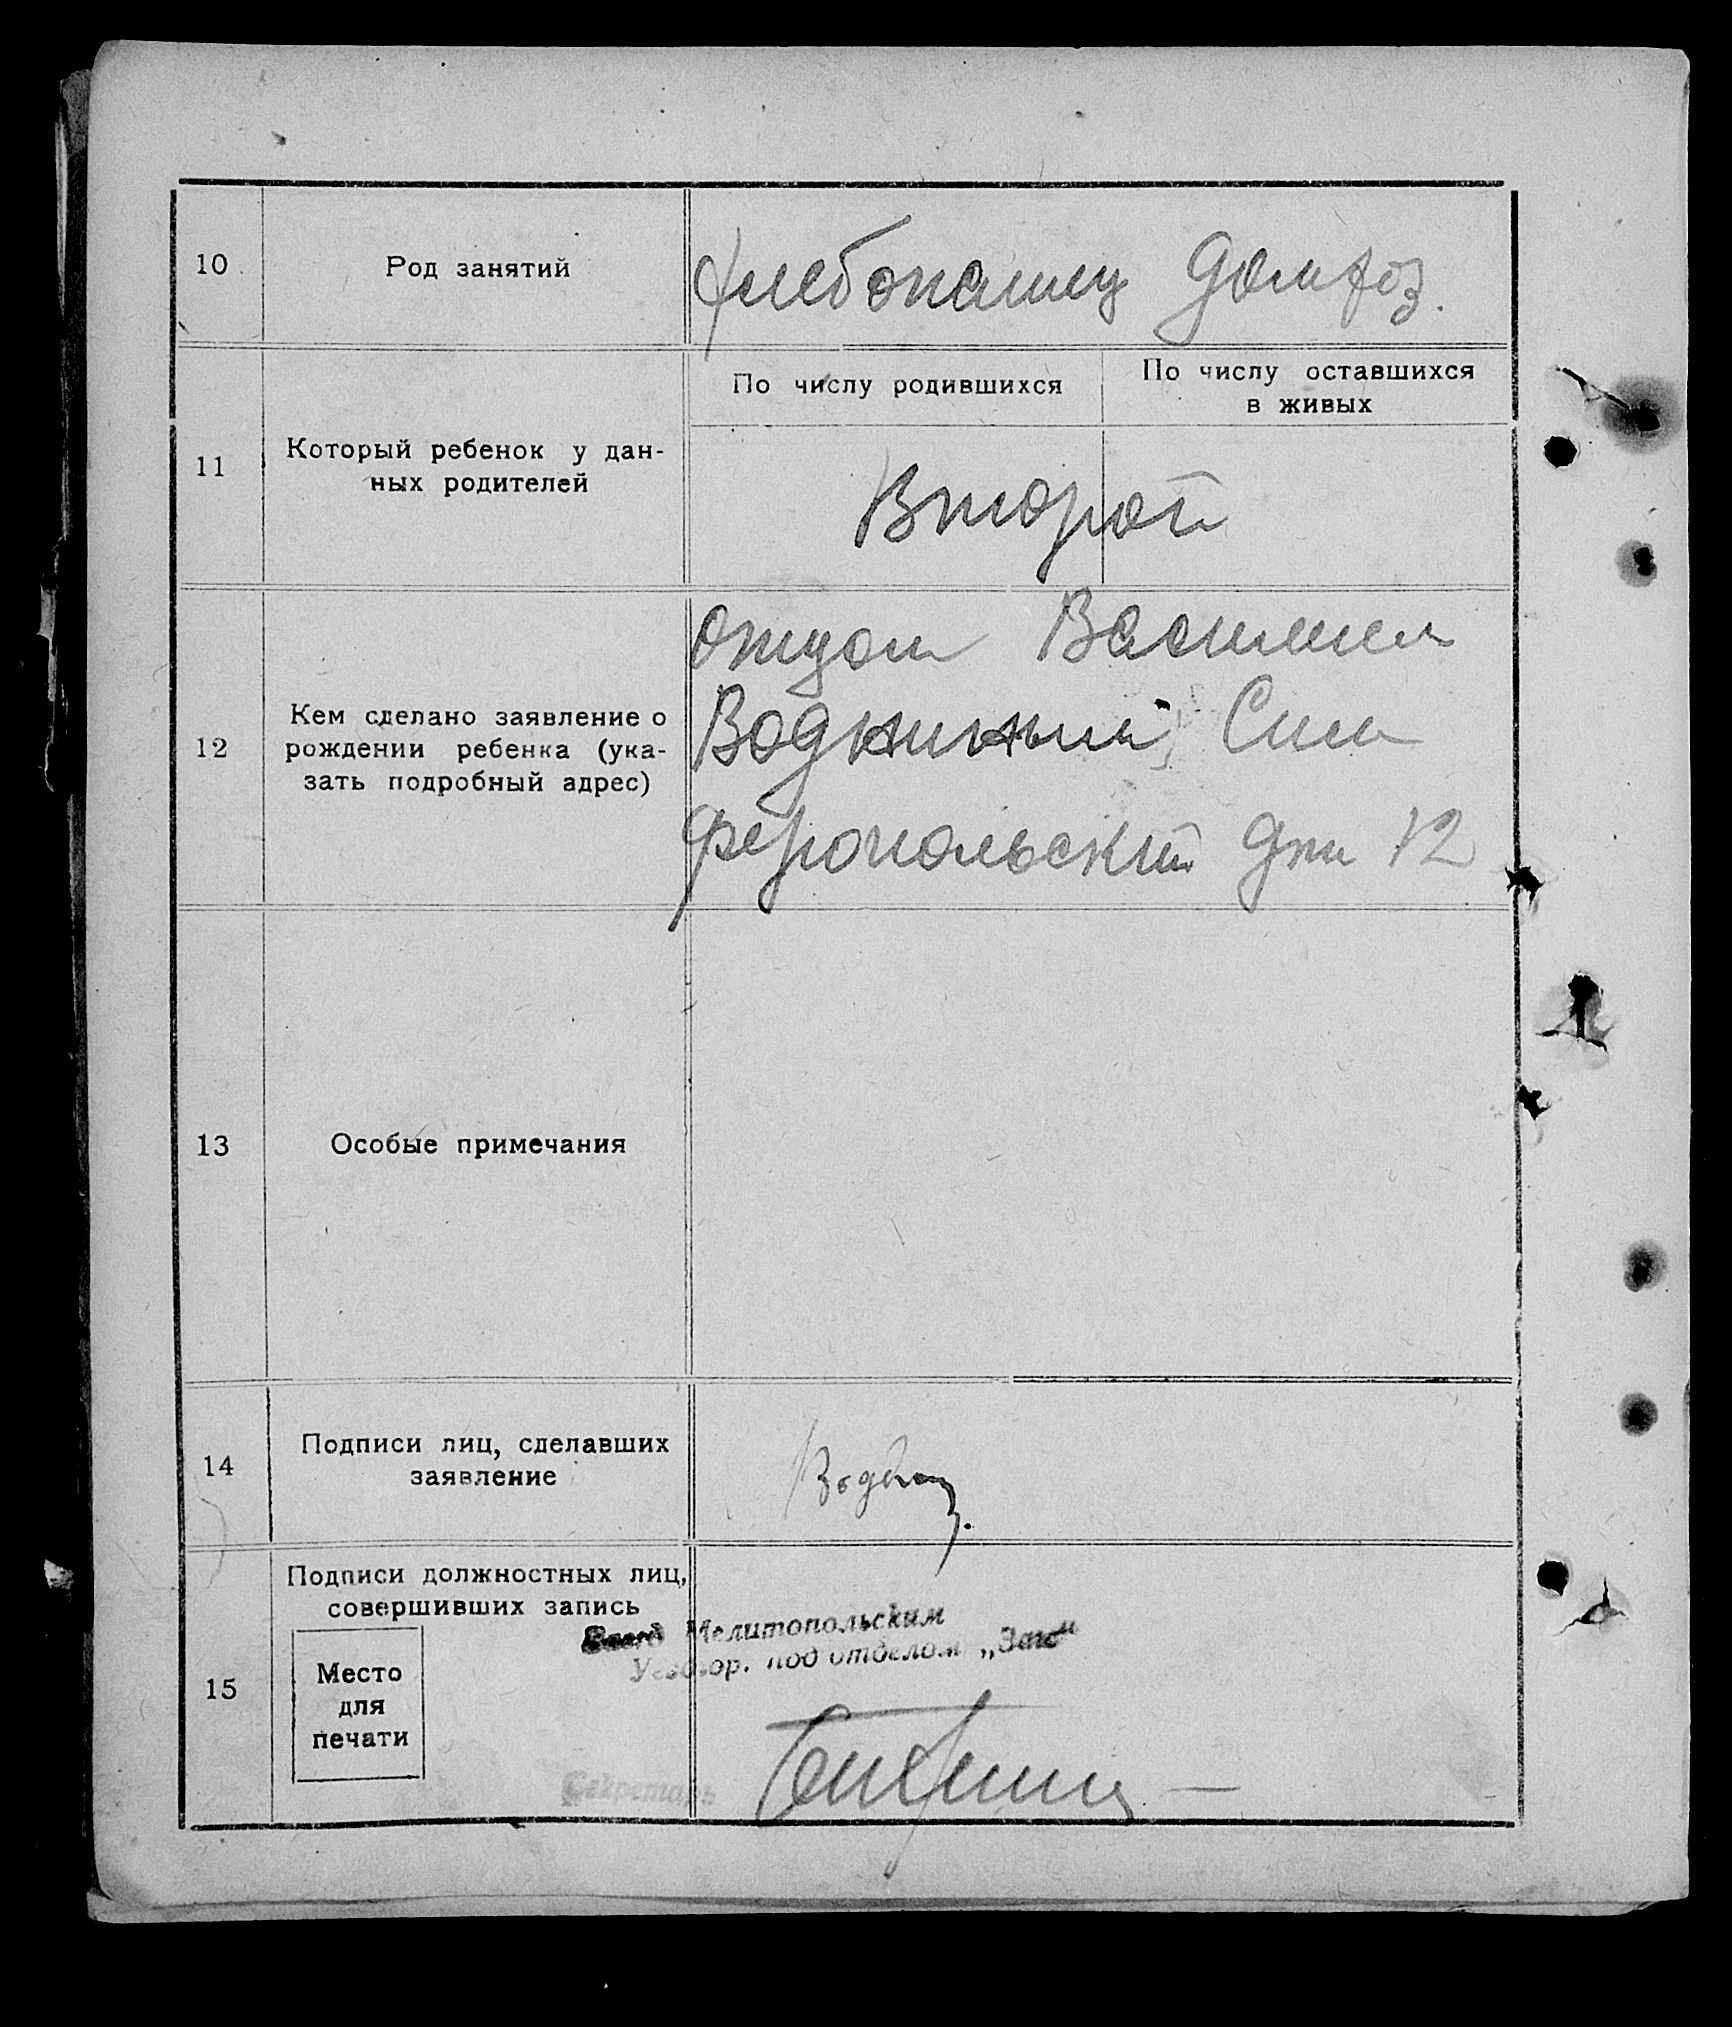 10
Род занятий
хлебопашец домхоз.
11
Который ребенок у дан-
ных родителей
По числу родившихся
По числу оставшихся
в живых
Второй
12
Кем сделано заявление о
рождении ребенка (ука-
зать подробный адрес)
отцом Василием
Симе
феропольский 12
13
Особые примечания
14
Подписи лиц, сделавших
заявление
15
Подписи должностных лиц,
совершивших запись
Место
для
печати
Мелитопольским
под отделом „Загс"
Секретарь